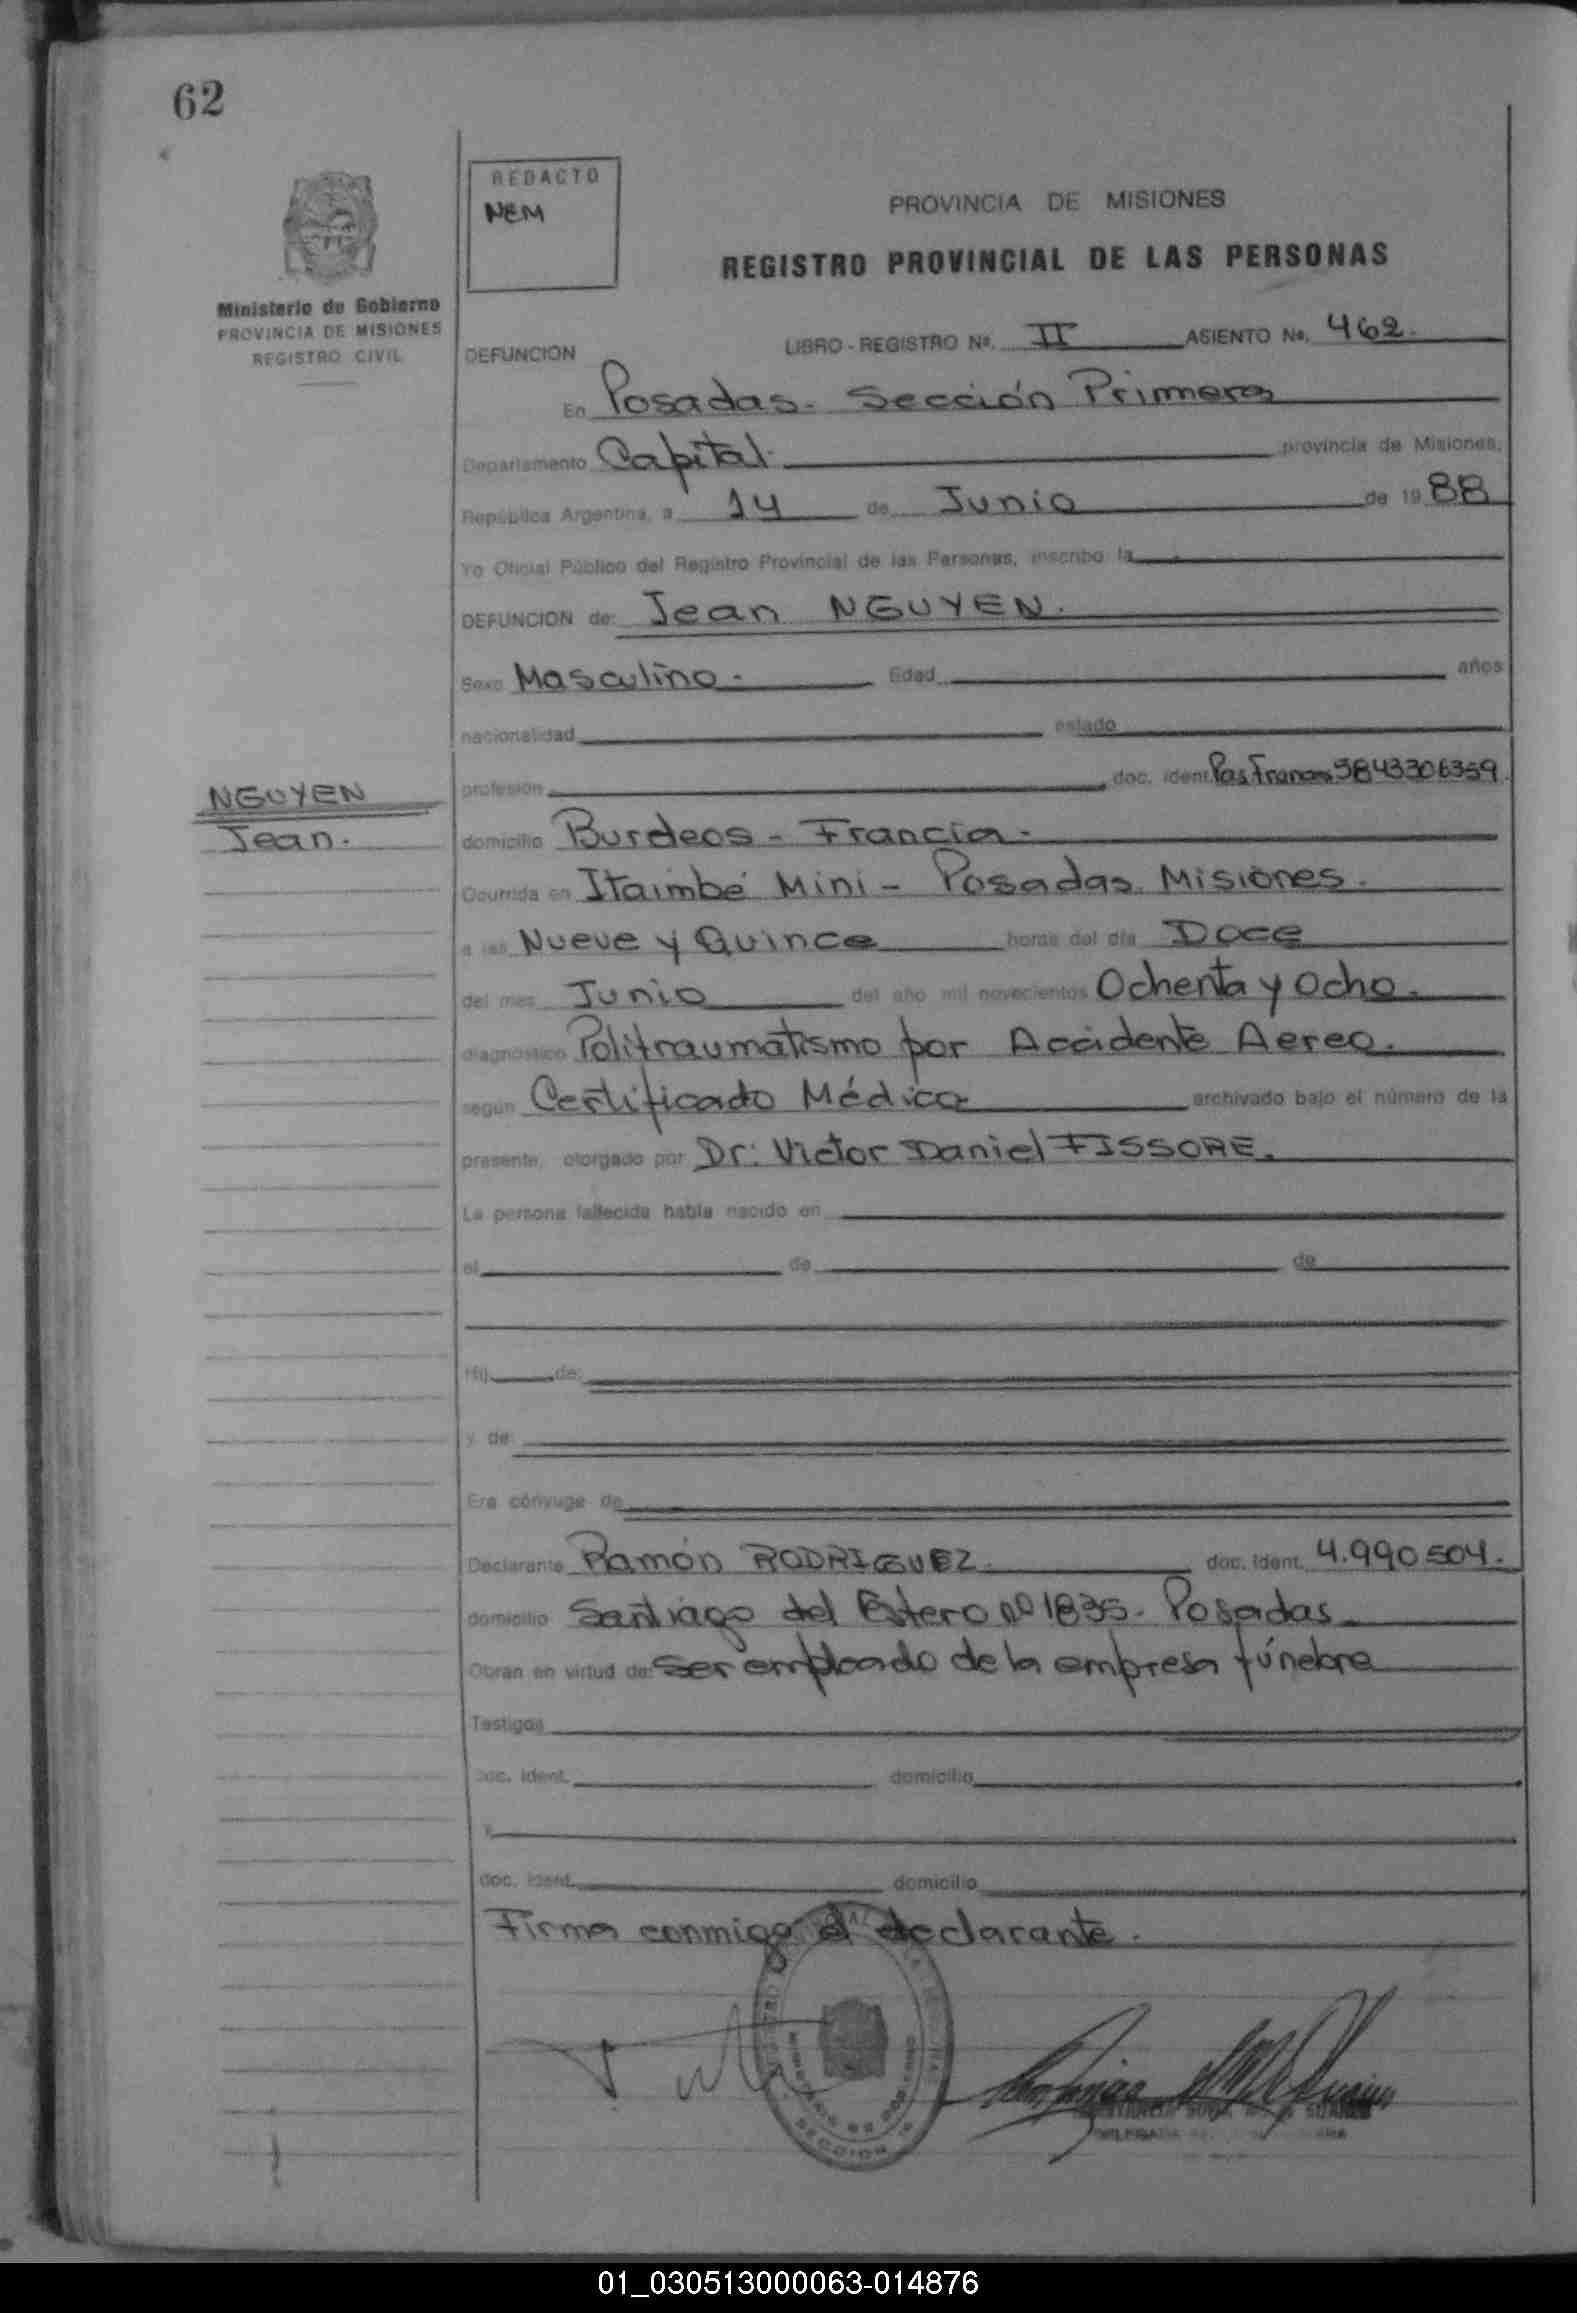 62
REDACTO
NEM
Ministerio de Gobierno
PROVINCIA DE MISIONES
REGISTRO CIVIL
PROVINCIA DE MISIONES
REGISTRO PROVINCIAL DE LAS PERSONAS
DEFUNCION LIBRO - REGISTRO Nº. II ASIENTO Nº. 462.
En Posadas. Sección Primera
Departamento Capital. provincia de Misiones,
República Argentina, a 14 de Junio de 1988
Yo Oficial Público del Registro Provincial de las Personas, inscribo la
DEFUNCION de: Jean NGUYEN.
Sexo Masculino. Edad años
nacionalidad estado
NGUYEN
Jean.
profesión doc. ident. Pas. 5843306359
domicilio Burdeos - Francia.
Ocurrida en Itaimbé Mini - Posadas Misiones.
a las Nueve y Quince horas del día Doce
del mes Junio del año mil novecientos Ochenta y Ocho.
diagnóstico Politraumatismo por Accidente Aereo.
según Certificado Médico archivado bajo el número de la
presente, otorgado por Dr. Victor Daniel FISSORE.
La persona fallecida había nacido en
el de de
Hij de:
y de:
Era cónyuge de
Declarante Ramón RODRIGUEZ. doc. ident. 4.990.504.
domicilio Santiago del Estero nº 1835. Posadas
Obran en virtud de: Ser empleado de la empresa fúnebre
Testigos
doc. ident. domicilio
y
doc. ident. domicilio
Firma conmigo el declarante.
01_030513000063-014876